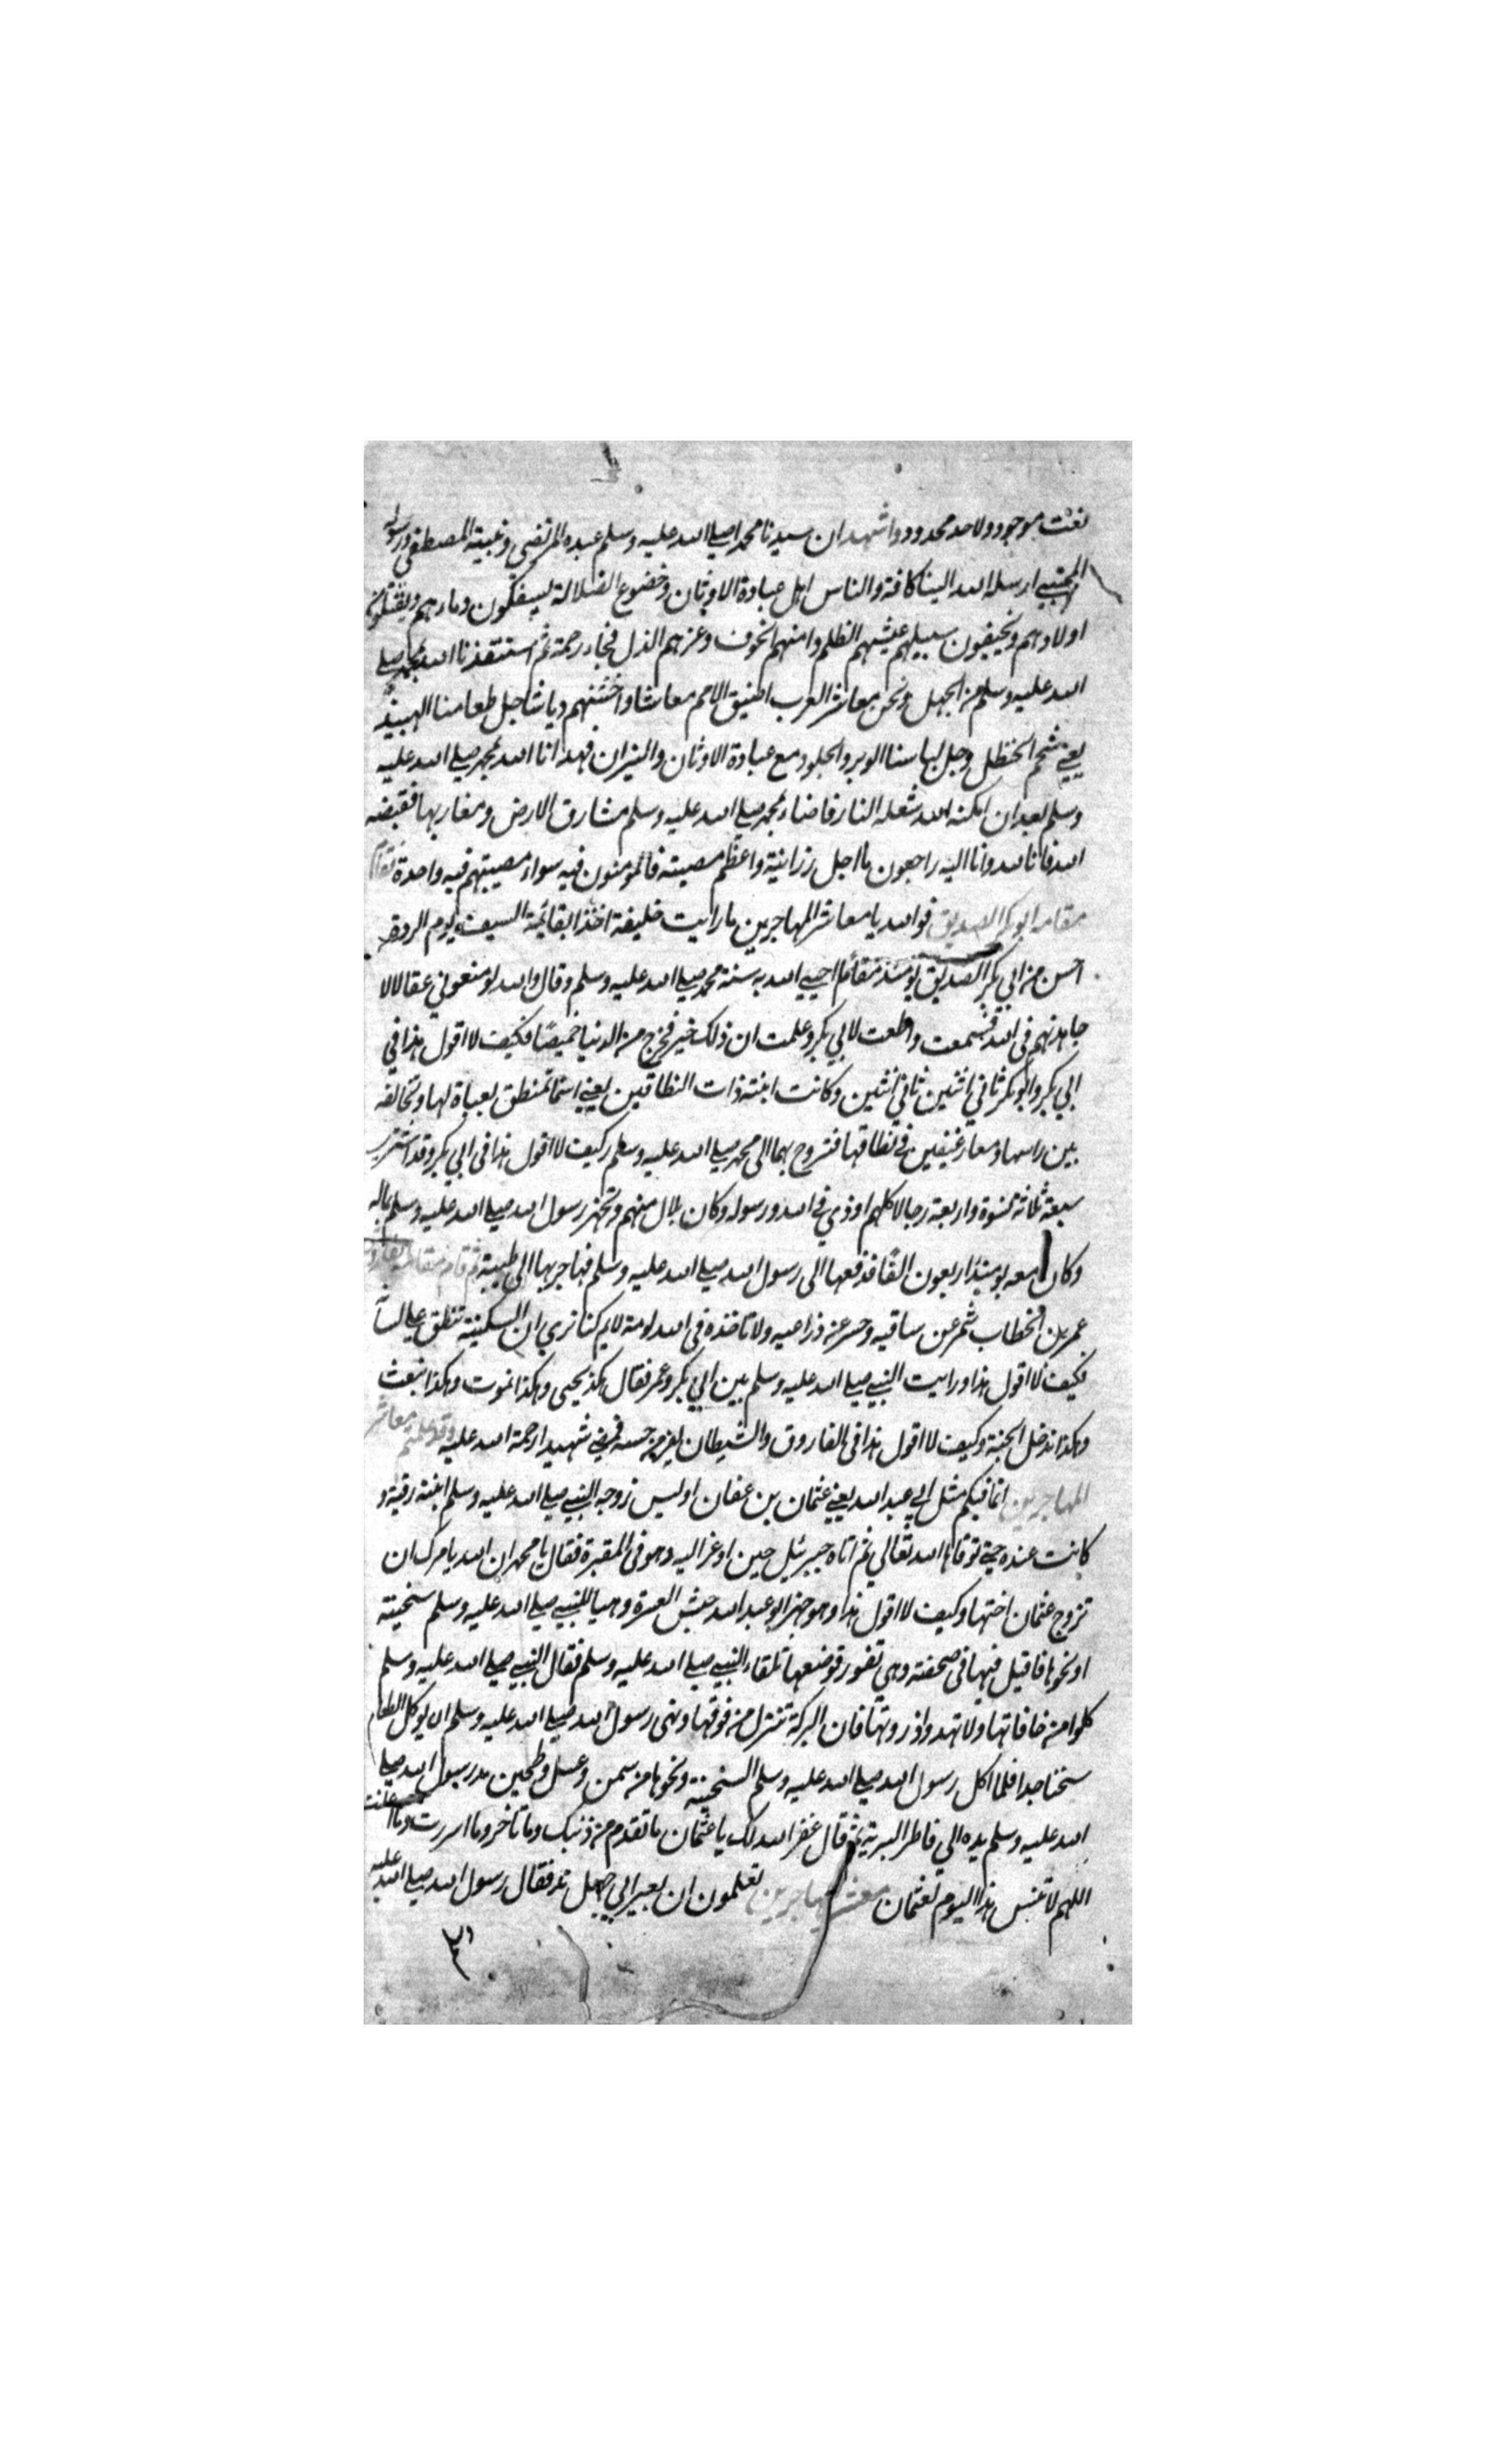 نعت موجود ولا حد محدود واشهد ان سيدنا محمدا صلى الله عليه وسلم عبده المرتضى ونبيه المصطفى ورسوله
المجتبى ارسله الله الينا كافة والناس اهل عبادة الاوثان وخضوع الضلالة يسفكون دماءهم ويقتلون
اولادهم ويخيفون سبيلهم عيشهم الظلم وامنهم الخوف وعزهم الذل فجاء رحمة ثم استنقذنا الله بمحمد صلى
الله عليه وسلم من الجهل ونحن معاشر العرب اضيق الامم معاشا واخشنهم رياشا جل طعامنا الهبيد
يعني شحم الحنظل وجل لباسنا الوبر والجلود مع عبادة الاوثان والنيران فهدانا الله بمحمد صلى الله عليه
وسلم بعد ان امكنه الله شعلة النار فاضاء بمحمد صلى الله عليه وسلم مشارق الارض ومغاربها فقبضه
الله فانا لله وانا اليه راجعون ما اجل رزانية واعظم مصيبته فالمؤمنون فيه سواء مصيبتهم فيه واحدة فقام
مقامه ابو بكر الصديق فوالله يا معاشر المهاجرين ما رايت خليفة اخذ بقائمة السيف يوم الردة
احسن من ابي بكر الصديق يومئذ مقام احيى الله به سنة محمد صلى الله عليه وسلم وقال والله لو منعوني عقالا لا
جاهدنهم في الله فسمعت واطعت لابي بكر وعلمت ان ذلك خير فخرج من الدنيا خميصا فكيف لا اقول هذا في
ابي بكر وابو بكر ثاني اثنين ثاني اثنين وكانت ابنته ذات النطاقين يعني اسما تمنطق بعباة لها وتخالفه
بين راسها ومعا رغيفين في نطاقها فتروح بهما الى محمد صلى الله عليه وسلم وكيف لا اقول هذا في ابي بكر وقد اشترى
سبعة ثلاثة نسوة واربعة رجالا كلهم اوذي في الله ورسوله وكان بلال منهم وتجهز رسول الله صلى الله عليه وسلم بماله
وكان معه يومئذ اربعون الفا فدفعها الى رسول الله صلى الله عليه وسلم فهاجر بها الى طيبة ثم قام مقامه الفاروق
عمر بن الخطاب شمر عن ساقيه وحسر عن ذراعيه ولا تاخذه في الله لومة لايم كنا نرى ان السكينة تنطق على لسانه
فكيف لا اقول هذا ورايت النبي صلى الله عليه وسلم بين ابي بكر وعمر فقال هكذا نحيى وهكذا نموت وهكذا نبعث
وهكذا ندخل الجنة وكيف لا اقول هذا في الفاروق والشيطان يفر من حسه فمضى شهيدا رحمة الله عليه وقد علمتم معاشر
المهاجرين انما فيكم مثل ابي عبد الله يعني عثمان بن عفان اوليس زوجه النبي صلى الله عليه وسلم ابنته رقية و
كانت عنده حتى توفاها الله تعالى ثم اتاه جبرئيل حين اوعز اليه وهو في المقبرة فقال يا محمد ان الله يامرك ان
تزوج عثمان اختها وكيف لا اقول هذا وهو جهز ابو عبد الله جيش العسرة وهيا للنبي صلى الله عليه وسلم سخينة
او نحوها فاقبل فيها في صحفته وهي تفور فوضعها تلقاء النبي صلى الله عليه وسلم فقال النبي صلى الله عليه وسلم
كلوا من حافاتها ولا تهدوا ذروتها فان البركة تنزل من فوقها ونهى رسول الله صلى الله عليه وسلم ان يوكل الطعام
سخنا جدا فلما اكل رسول الله صلى الله عليه وسلم السخينة ونحوها من سمن وعسل وطحين مد رسول الله صلى
الله عليه وسلم يده الى فاطر البرية ثم قال غفر الله لك يا عثمان ما تقدم من ذنبك وما تاخر وما اسررت وما اعلنت
اللهم لا تنس هذا اليوم لعثمان معشر المهاجرين تعلمون ان بعير ابي جهل ند فقال رسول الله صلى الله عليه